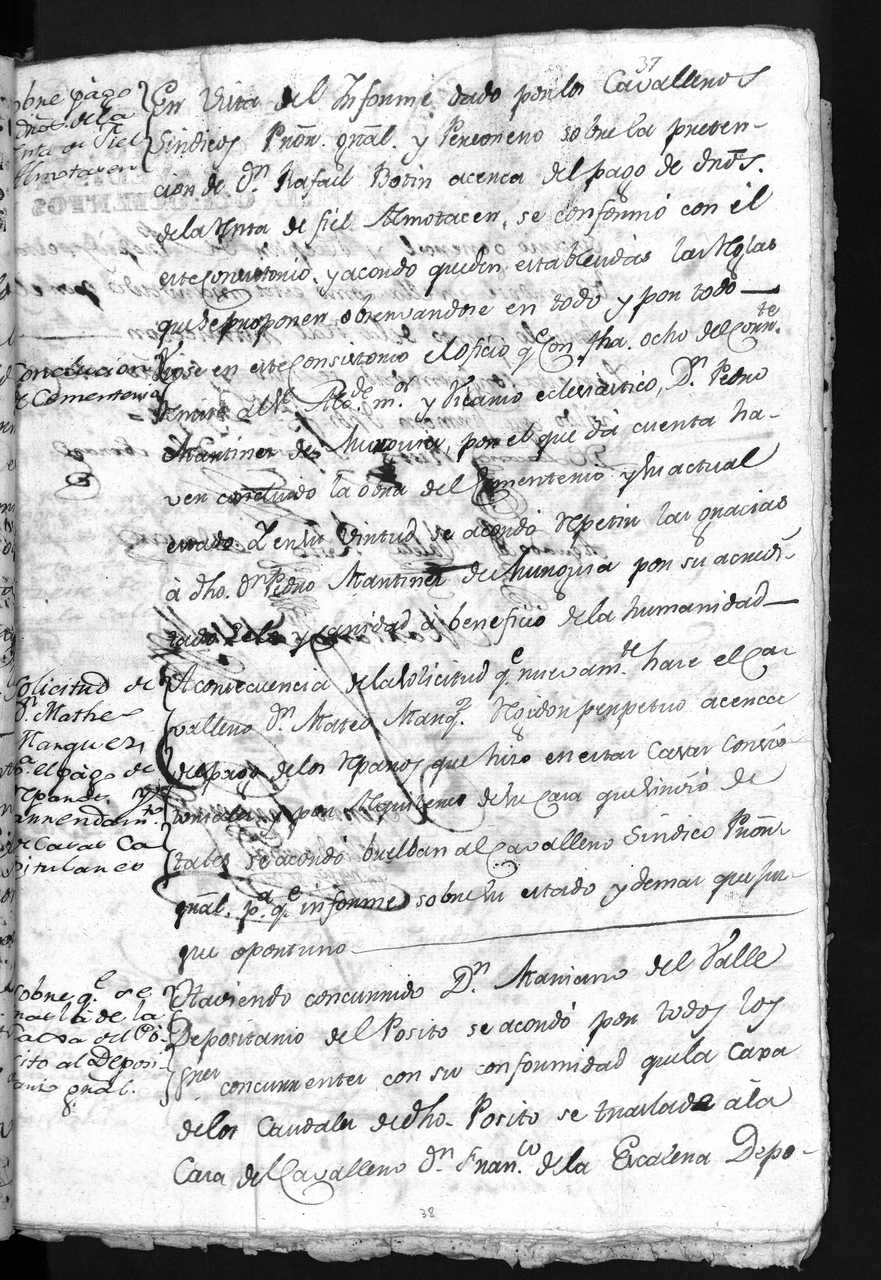 37
obre pàgo
de la
Fiel
Almotacen
En Vista del Informe dado por los Cavalleros
Sindicos Prõr. gñal. y Personero sobre la preten-
cion de Dn. Rafaêl Botin acerca del pago de
de la Renta de fiel Almotacen, se conformó con êl
este Consistorio, y acordo queden establecidas las Reglas
que se proponen observandose en todo y por todo
Conclucion
de Cementerio
en este Consistorio el oficio qe con fha. ocho del Corrte.
remite al Sr. Alcde. mor. y Vicario eclesiastico, Dn Pedro
Martinez de Murguia, por el que dà cuenta ha-
ver concluido la obra del Cementerio y su actual
estado y en su Virtud se acordó Repetir las gracias
à dho. Dn. Pedro Martinez de Murguia por su acredi-
tado zelo y caridad à beneficiô de la humanidad
Solicitud de
Dn. Matheo
Marquez
el pàgo de
Reparos y
arrendamto.
de Casas Ca
pitulares
A consecuencia de la Solicitud qe. nuevamte. hace el Ca
vallero Dn. Mateo Marqz. Regidor perpetuo acerca
del pago de los Reparos que hizo en estas Casas Consis-
toriales y por Alquileres de su Casa que sirviô de
tales se acordó buelban al Cavallero Sindico Prõr
gñal. pa. qe. informe sobre su estado y demas que juz-
gue oportuno
Sobre qe. se
de la
Caxa del Pô-
sito al Deposi-
tario gñal.
Haviendo concurrido Dn. Mariano del Valle
Depositario del Posito se acordó por todos los
Sres. concurrentes con su conformidad que la Caxa
de los Caudales de dho. Posito se traslade à la
Casa del Cavallero Dn. Franco. de la Escalera Depo-
38